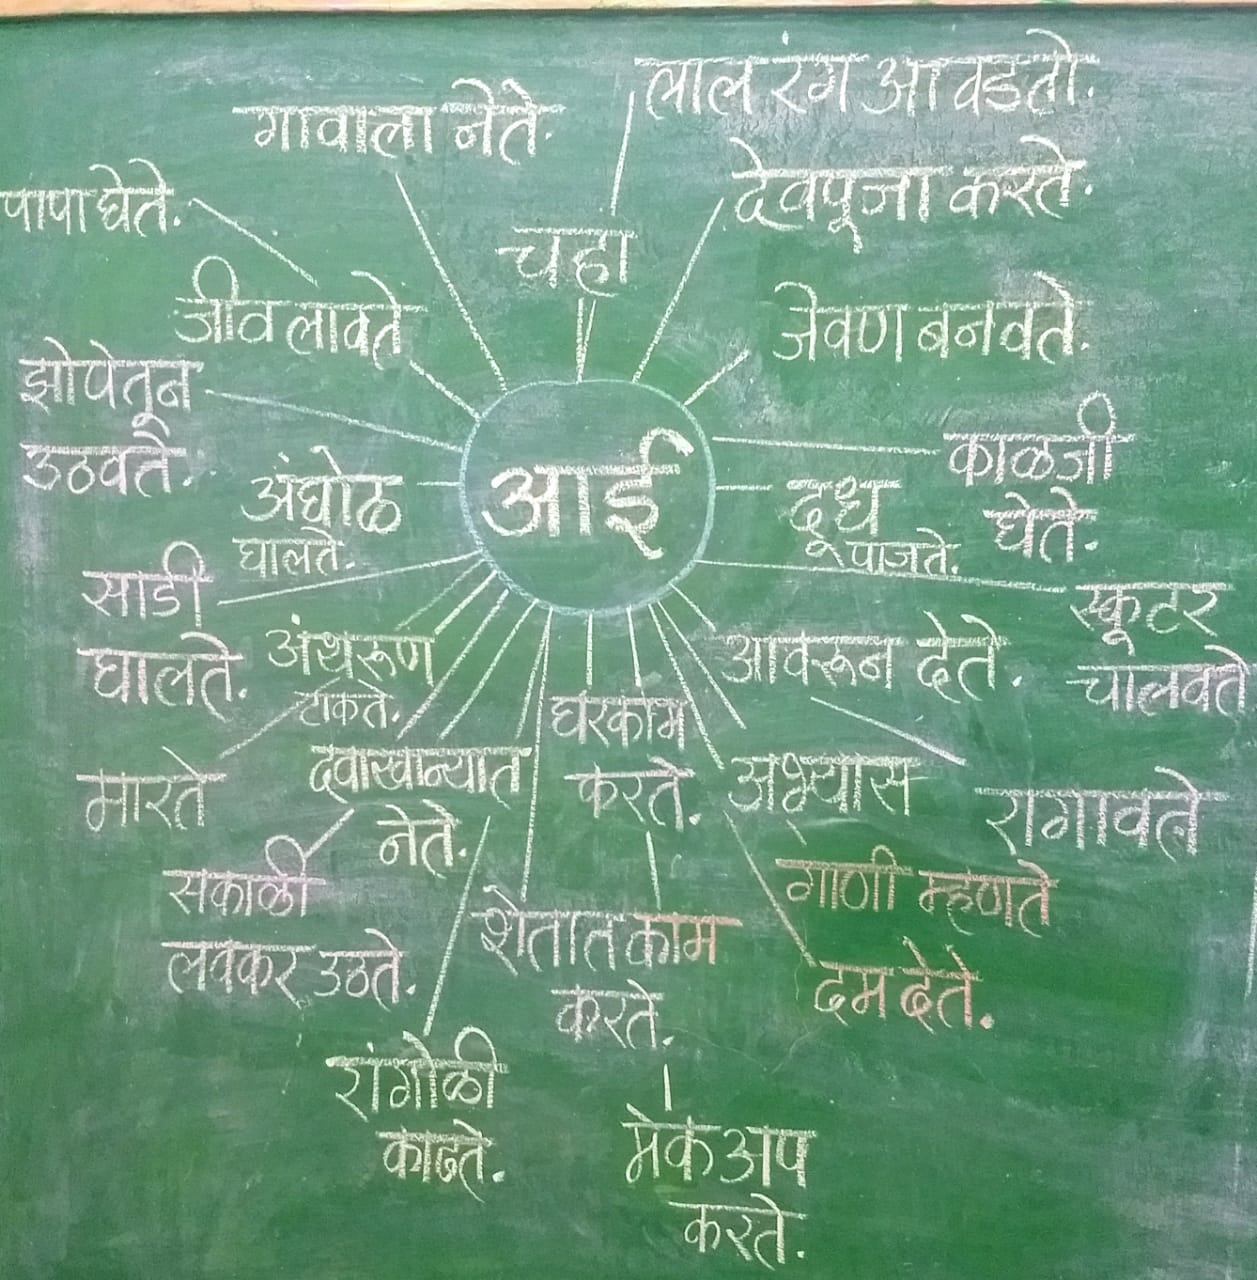 लाल रंग आवडतो.
गावाला नेते.
देवपूजा करते.
पापा घेते.
चहा
जीव लावते
जेवण बनवते.
झोपेतून
उठवते.
काळजी
घेते.
आई
अंघोळ
घालते.
दूध
पाजते.
साडी
घालते.
स्कूटर
चालवते
अंथरूण
टाकते.
आवरून देते.
घरकाम
करते.
दवाखान्यात
नेते.
अभ्यास
मारते
रागावते
सकाळी
लवकर उठते.
गाणी म्हणते
शेतात काम
करते.
दम देते.
रांगोळी
काढते.
मेकअप
करते.